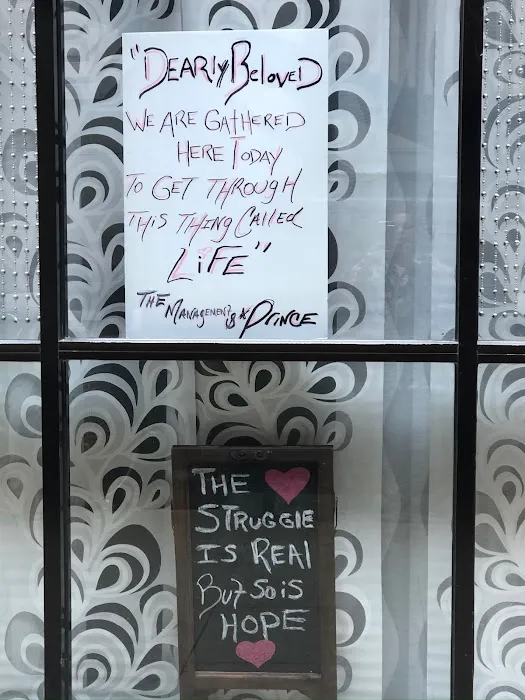 "DEARLY BELOVED
WE ARE GATHERED
HERE TODAY
TO GET THROUGH
THIS THING CALLED
LIFE"
THE MANAGEMENT & PRINCE
THE
STRUGGLE
IS REAL
BUT SO IS
HOPE